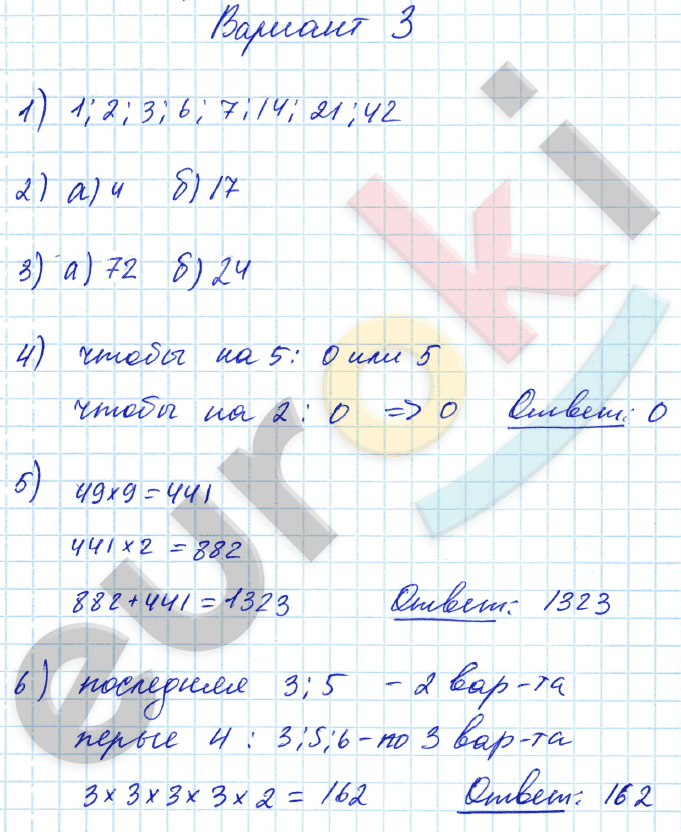 Вариант 3
1) 1; 2; 3; 6; 7; 14; 21; 42
2) а) 4 б) 17
3) а) 72 б) 24
4) чтобы на 5: 0 или 5
чтобы на 2: 0 => 0 Ответ: 0
5) 49×9=441
441×2=882
882+441=1323 Ответ: 1323
6) последняя 3; 5 – 2 вар-та
перые 4: 3; 5; 6 – по 3 вар-та
3×3×3×3×2=162 Ответ: 162
euroki